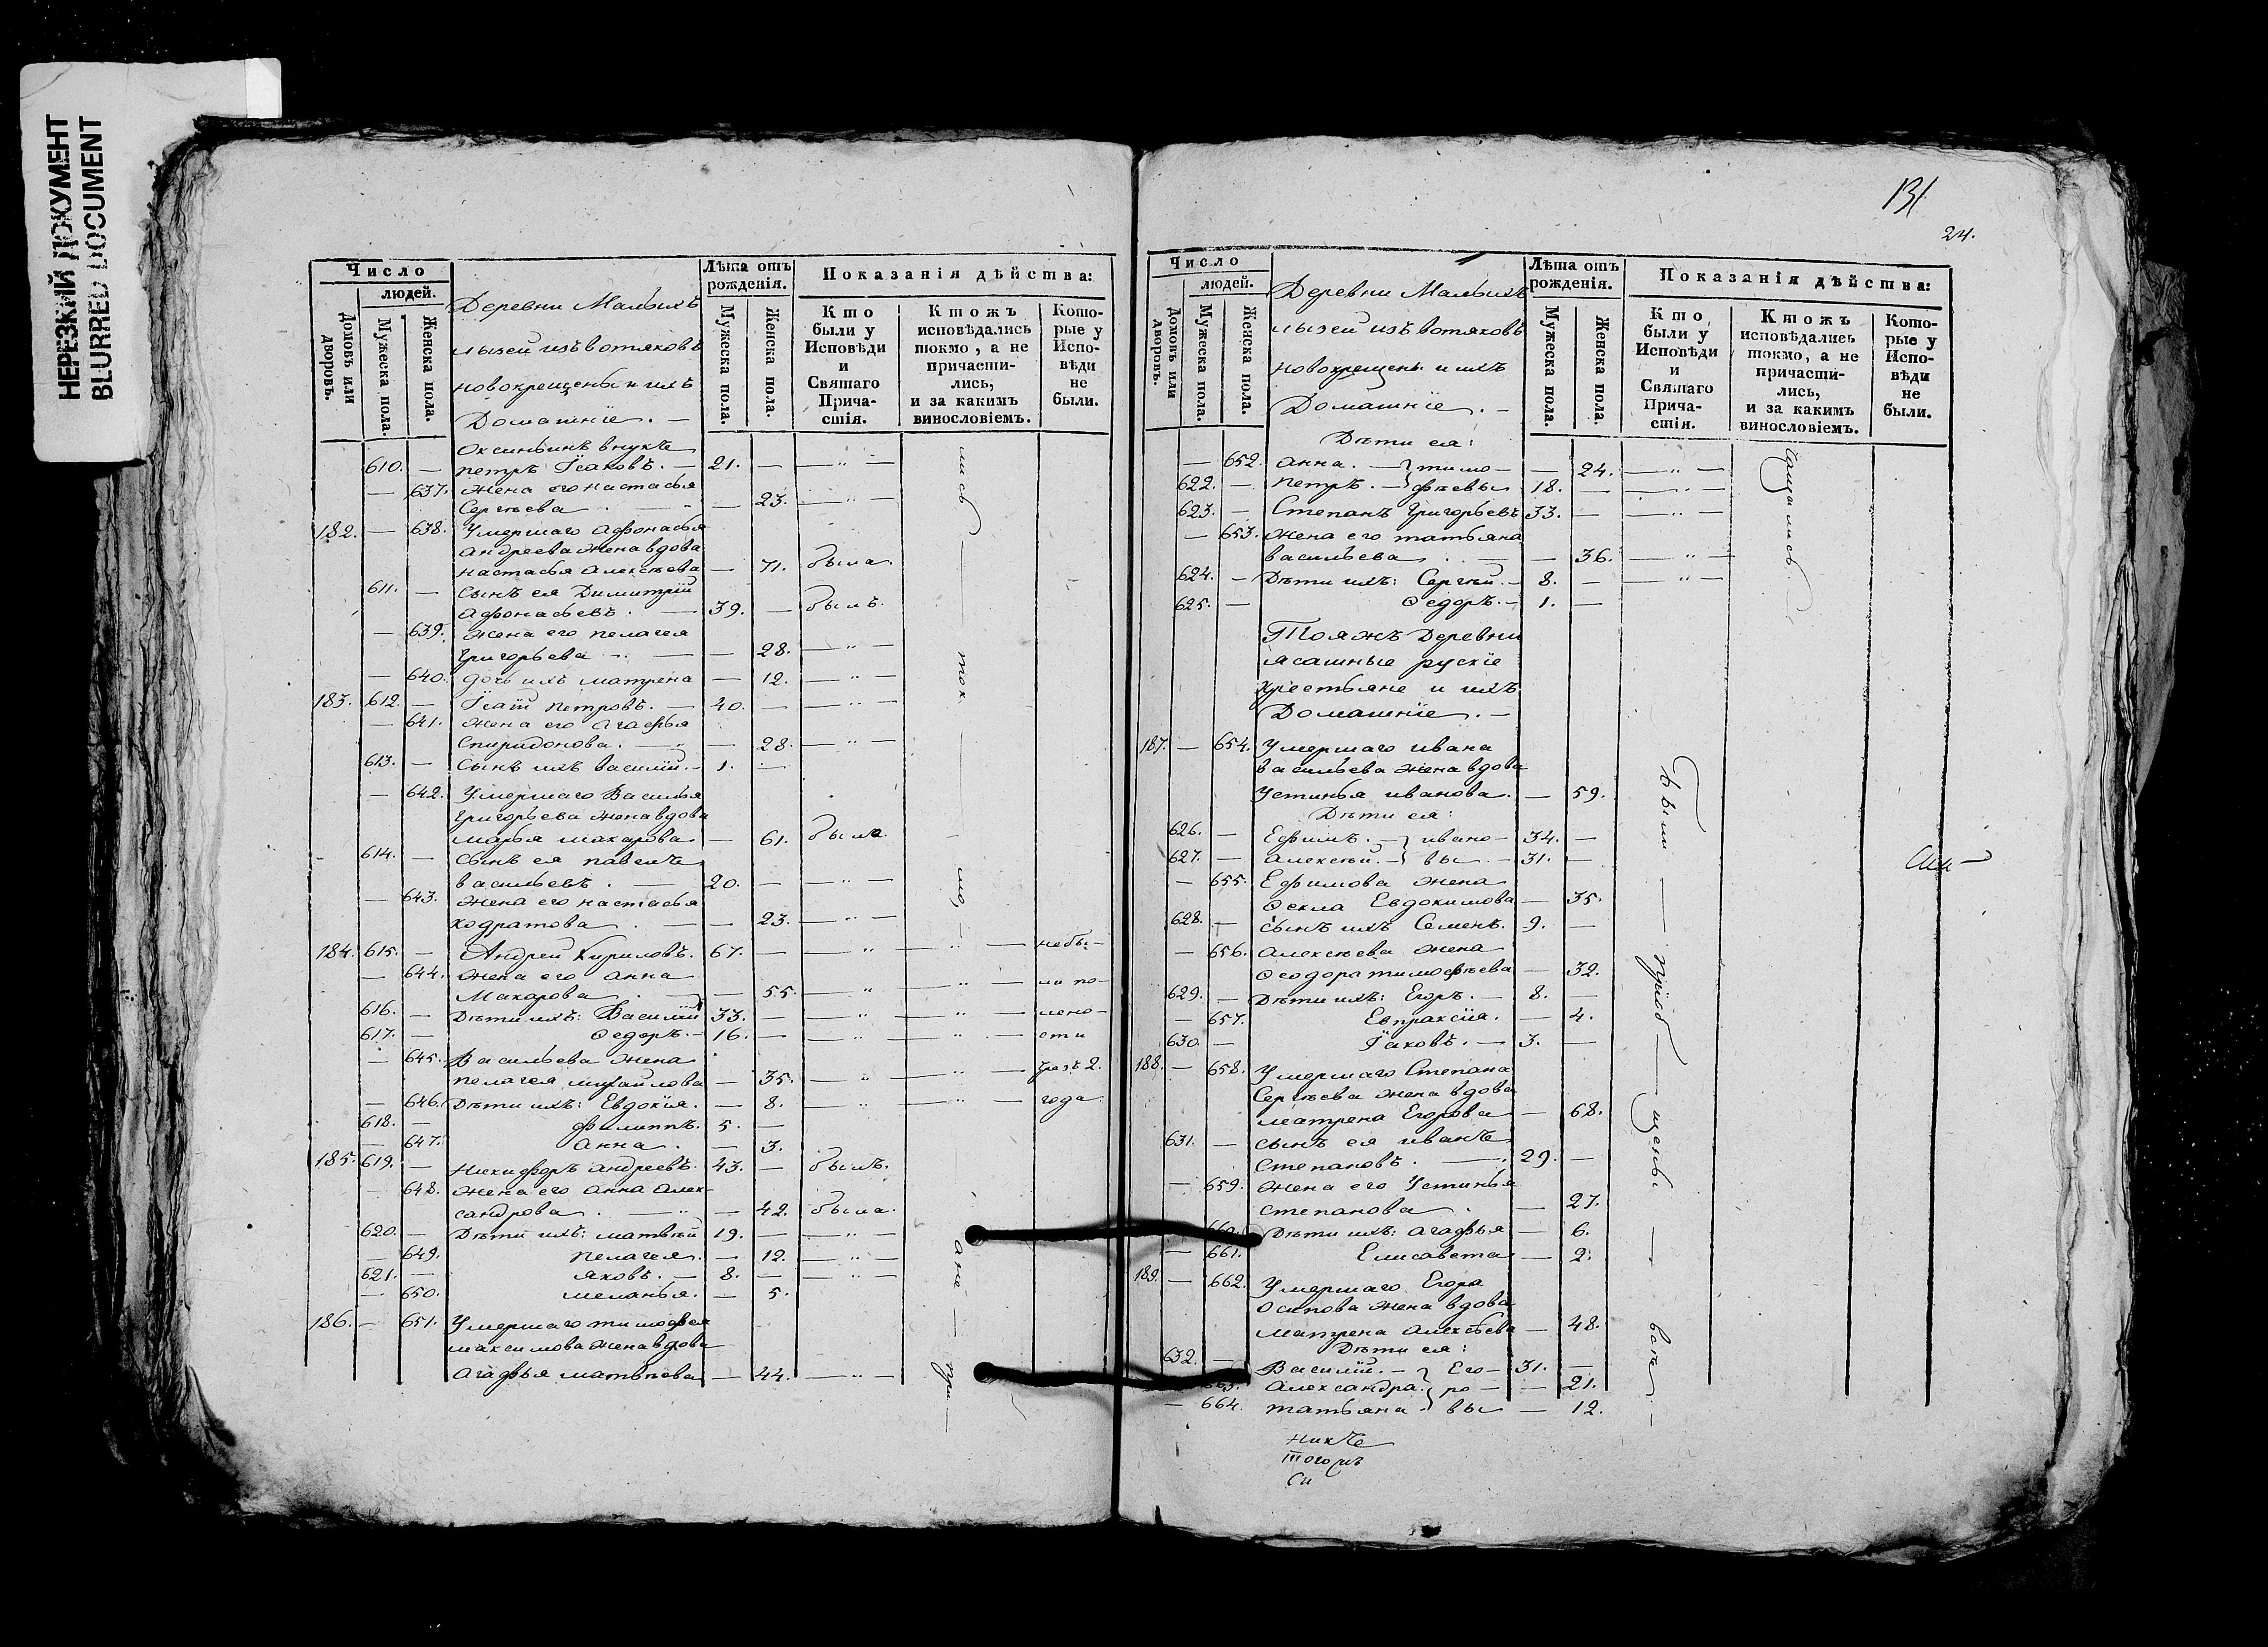 НЕРЕЗКИЙ ДОКУМЕНТ
BLURRED DOCUMENT
Число
людей.
Домовъ или дворовъ.
Мужеска пола.
Женска пола.
Деревни Малыхъ
лызей изъ вотяковъ
новокрещены и ихъ
Домашніе. —
Лѣта отъ рожденія.
Мужеска пола.
Женска пола.
Показанія дѣйства:
Кто были у Исповѣди и Святаго Причастія.
Ктожъ исповѣдались токмо, а не причастились, и за какимъ винословіемъ.
Которые у Исповѣди не были.
Оксиньинъ внукъ
610. — петръ Ісаковъ. — 21. — — „ —
— 637. жена его настасья
Сергѣева . — „ — 23. — „ —
182. — 638. Умершаго Афонасья
андреева жена вдова
настасья алексѣева — 71. была
611. — сынъ ея Димитрій
афонасьевъ. — 39. — былъ.
— 639. жена его пелагея
григорьева — — 28. — „ —
— 640. дочь ихъ матрена — 12. — „ —
183. 612. — Ісаій петровъ. — 40. — — „ —
— 641. жена его агафья
спиридонова. — „ — 28. — „ —
613. — сынъ ихъ василій. — 1. —
— 642. Умершаго Василья
григорьева жена вдова
марья макарова — 61. была.
614. — сынъ ея павелъ
васильевъ. — 20. — — „ —
— 643. жена его настасья
кодратова . — — 23. — „ —
184. 615. — Андрей Кириловъ. 67. — — „ — — „ — небы-
— 644. жена его анна
Макарова . — — 55. — „ — — „ — ли по-
616. — Дѣти ихъ: Василій 33. — — „ — „ — лено-
617. — Ѳедоръ. — 16. — — „ — „ — сти
— 645. Васильева жена
пелагея михайлова — 35. — „ — — „ — чрезъ 2.
— 646. Дѣти ихъ: Евдокія. — 8. — „ — — „ — года.
618. — филиппъ. 5. —
— 647. анна . — 3.
185. 619. — никифоръ андреевъ. 43. — былъ.
648. жена его анна алек-
сандрова . — „ — 42. была.
620. — Дѣти ихъ: матвѣй 19. — — „ —
— 649. пелагея. — 12. — „ —
621. — яковъ. — 8. — — „ —
— 650. меланья. — 5.
186. — 651. Умершаго тимофея
максимова жена вдова
агафья матвѣева — 44. — „ —
лись — ток — мо, — а не — при —
131
24.
Число
людей.
Домовъ или дворовъ.
Мужеска пола.
Женска пола.
Деревни Малыхъ
лызей изъ вотяковъ
новокрещены и ихъ
Домашніе. —
Лѣта отъ рожденія.
Мужеска пола.
Женска пола.
Показанія дѣйства:
Кто были у Исповѣди и Святаго Причастія.
Ктожъ исповѣдались токмо, а не причастились, и за какимъ винословіемъ.
Которые у Исповѣди не были.
Дѣти ея:
— 652. анна. — } тимо — — 24. — „ —
622. — петръ. — } фѣевы 18. — — „ —
623. — Степанъ григорьевъ 33. — — „ —
— 653. жена его татьяна
васильева . — — 36. — „ —
624. — Дѣти ихъ: Сергѣй. — 8. — — „ —
625. — Ѳедоръ. — 1. —
Тояжъ Деревни
ясашные рускіе
крестьяне и ихъ
Домашніе. —
187. — 654. Умершаго ивана
васильева жена вдова
устинья иванова. — 59.
Дѣти ея:
626. — Ефимъ. — } ивано — 34. —
627. — алексѣй. — } вы — 31. —
— 655. Ефимова жена
Ѳекла Евдокимова — 35.
628. — сынъ ихъ Семенъ. 9. —
— 656. алексѣева жена
Ѳеодора тимофѣева — 32.
629. — Дѣти ихъ: Егоръ. — 8. —
— 657. Евпраксія. — 4.
630. — Іаковъ. — 3. —
188. — 658. Умершаго Степана
Сергѣева жена вдова
матрена Егорова — 68.
631. — сынъ ея иванъ
степановъ. — 29. —
— 659. жена его Устинья
степанова . — 27.
660. Дѣти ихъ: агафья — 6.
— 661. Елисавета — 2.
189. — 662. Умершаго Егора
осипова жена вдова
матрена алексѣева — 48.
Дѣти ея:
632. — Василій. — } Его — 31. —
663. александра. } ро — — 21.
— 664. татьяна. } вы — 12.
Были — пріоб — щены — всѣ. —